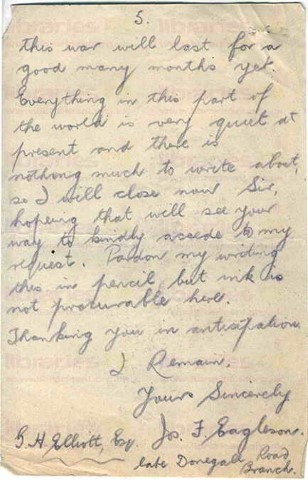 5.
this war will last for a
good many months yet.
Everything in this part of
the world is very quiet at
present and there is
nothing much to write about,
so I will close now Sir,
hoping that will see your
way to kindly accede to my
request. Pardon my writing
this in pencil but ink is
not procurable here.
Thanking you in anticipation
I Remain.
Yours Sincerely
G. H. Elliott, Esq. Jos. F. Eagleson.
late Donegall Road
Branch.